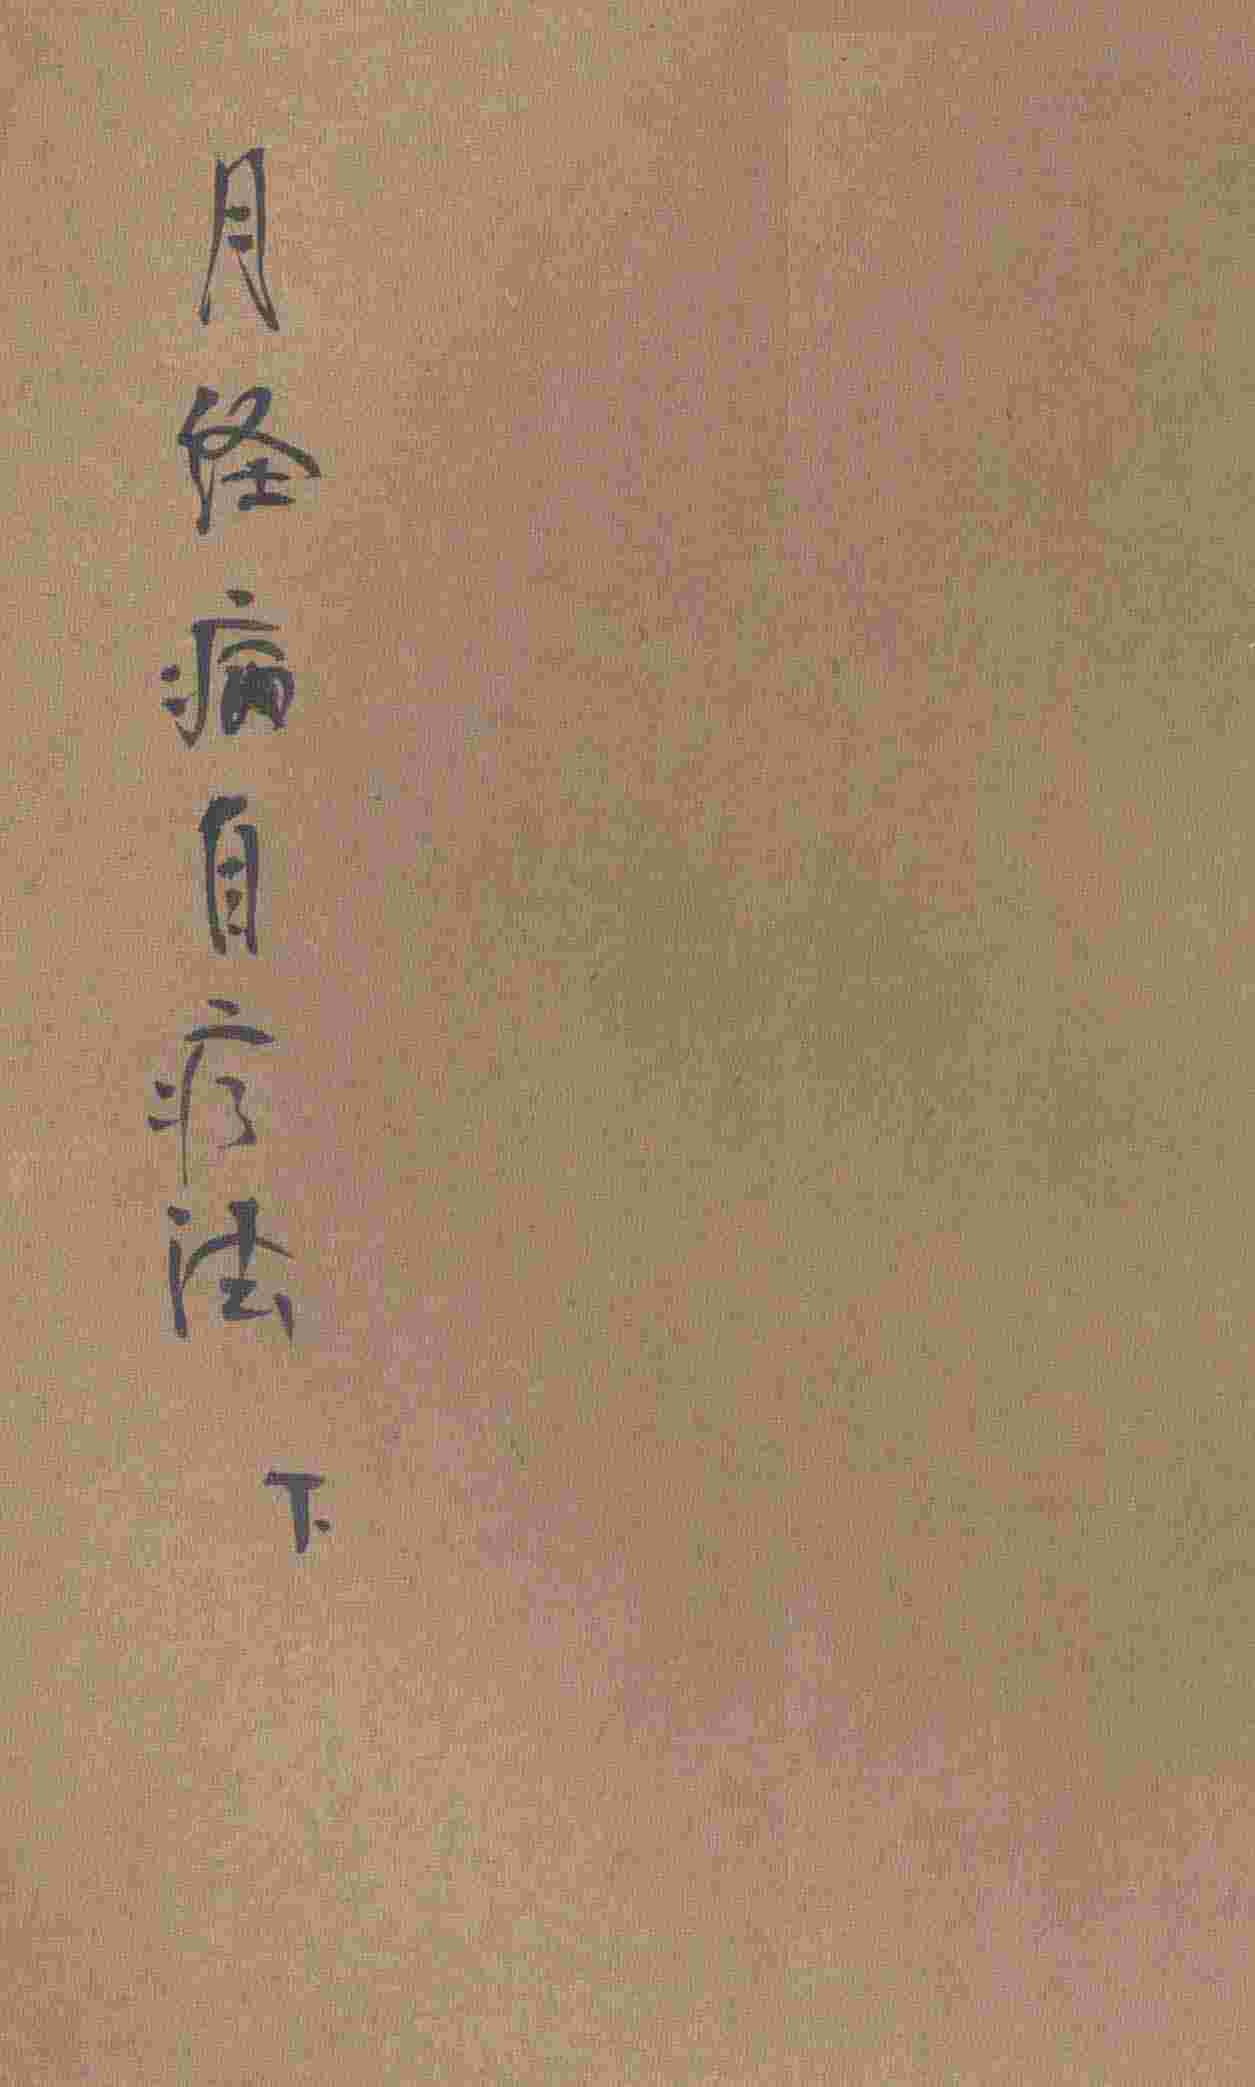 月经病自疗法
下